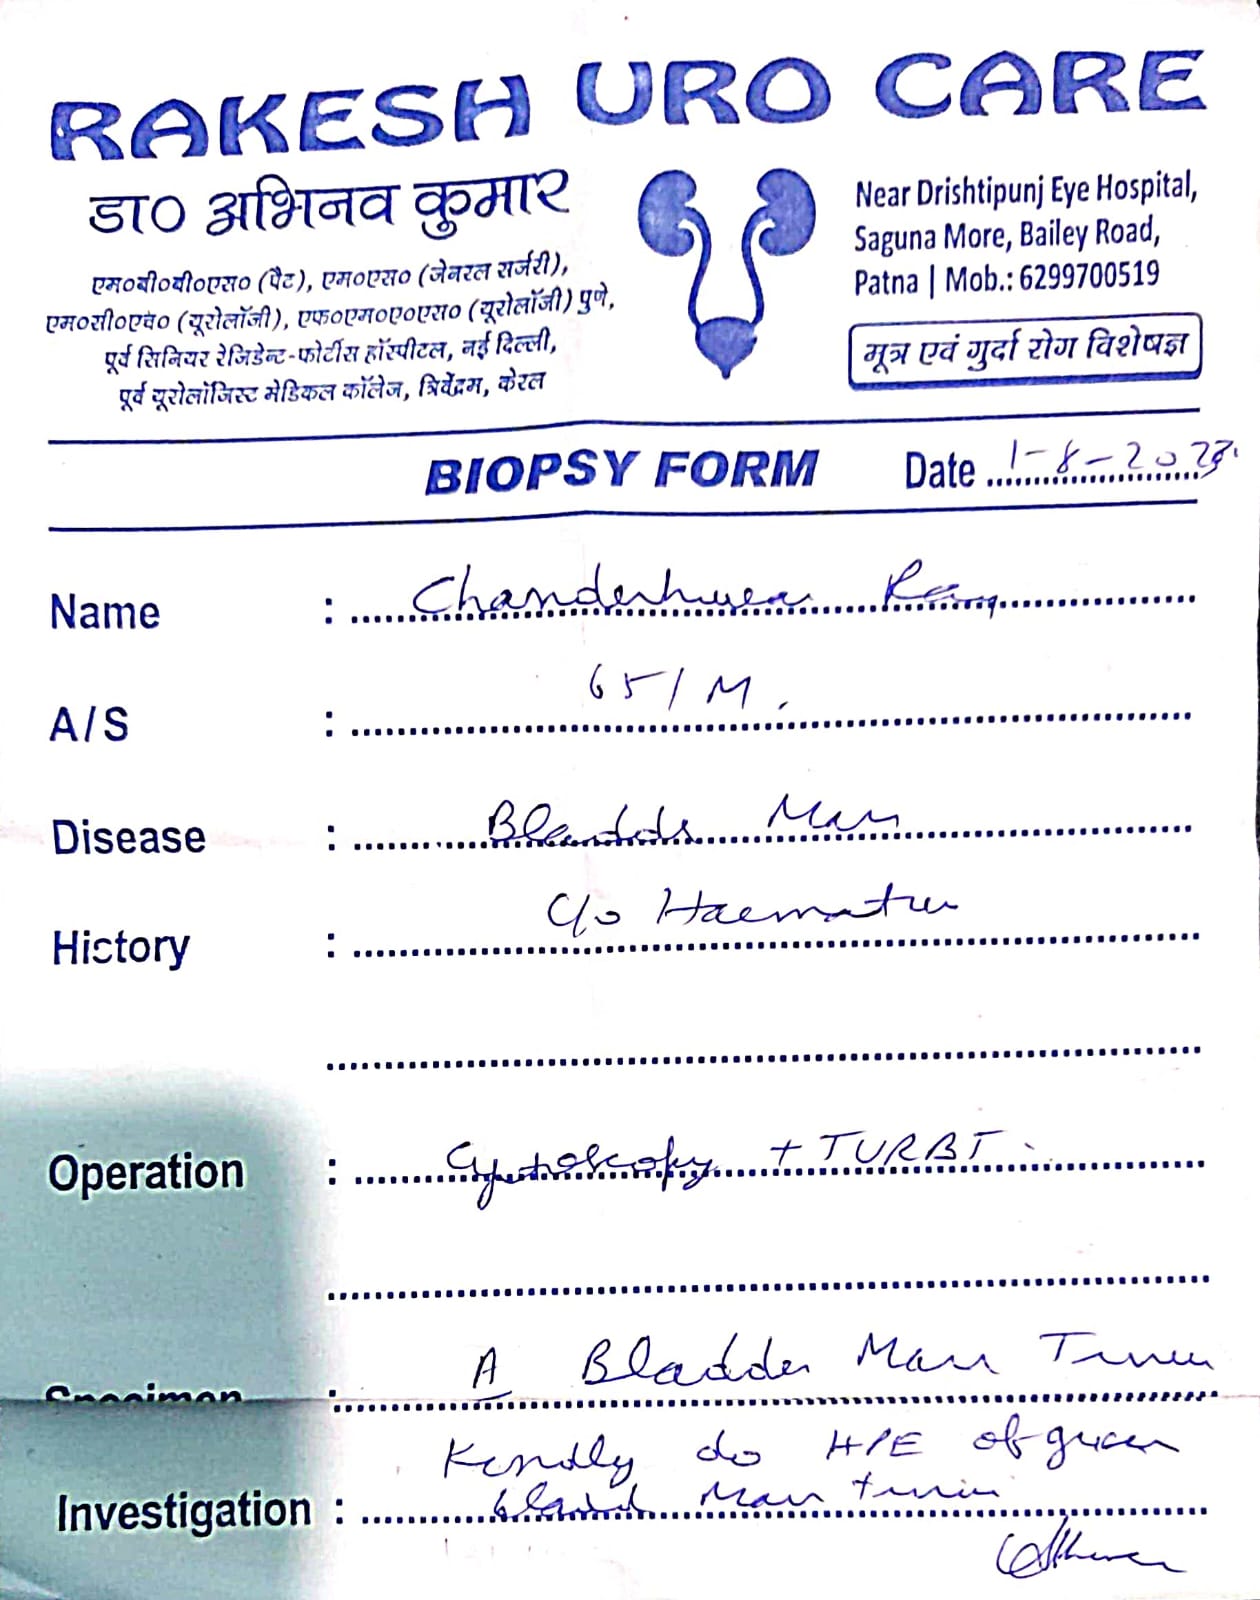 RAKESH URO CARE
डा० अभिनव कुमार
एम०बी०बी०एस० (पैट), एम०एस० (जेनरल सर्जरी),
एम०सी०एच० (यूरोलॉजी), एफ०एम०ए०एस० (यूरोलॉजी) पुणे,
पूर्व सिनियर रेजिडेन्ट-फोर्टीस हॉस्पीटल, नई दिल्ली,
पूर्व यूरोलॉजिस्ट मेडिकल कॉलेज, त्रिवेंद्रम, केरल
Near Drishtipunj Eye Hospital,
Saguna More, Bailey Road,
Patna | Mob.: 6299700519
मूत्र एवं गुर्दा रोग विशेषज्ञ
BIOPSY FORM Date 1-8-2023
Name :
A/S : 65/M.
Disease : Bladder Mass
History : C/o Haematuria
Operation : Cystoscopy + TURBT.
Specimen : A Bladder Mass Tumor
Kindly do HPE of given
Investigation : bladder Mass tumor